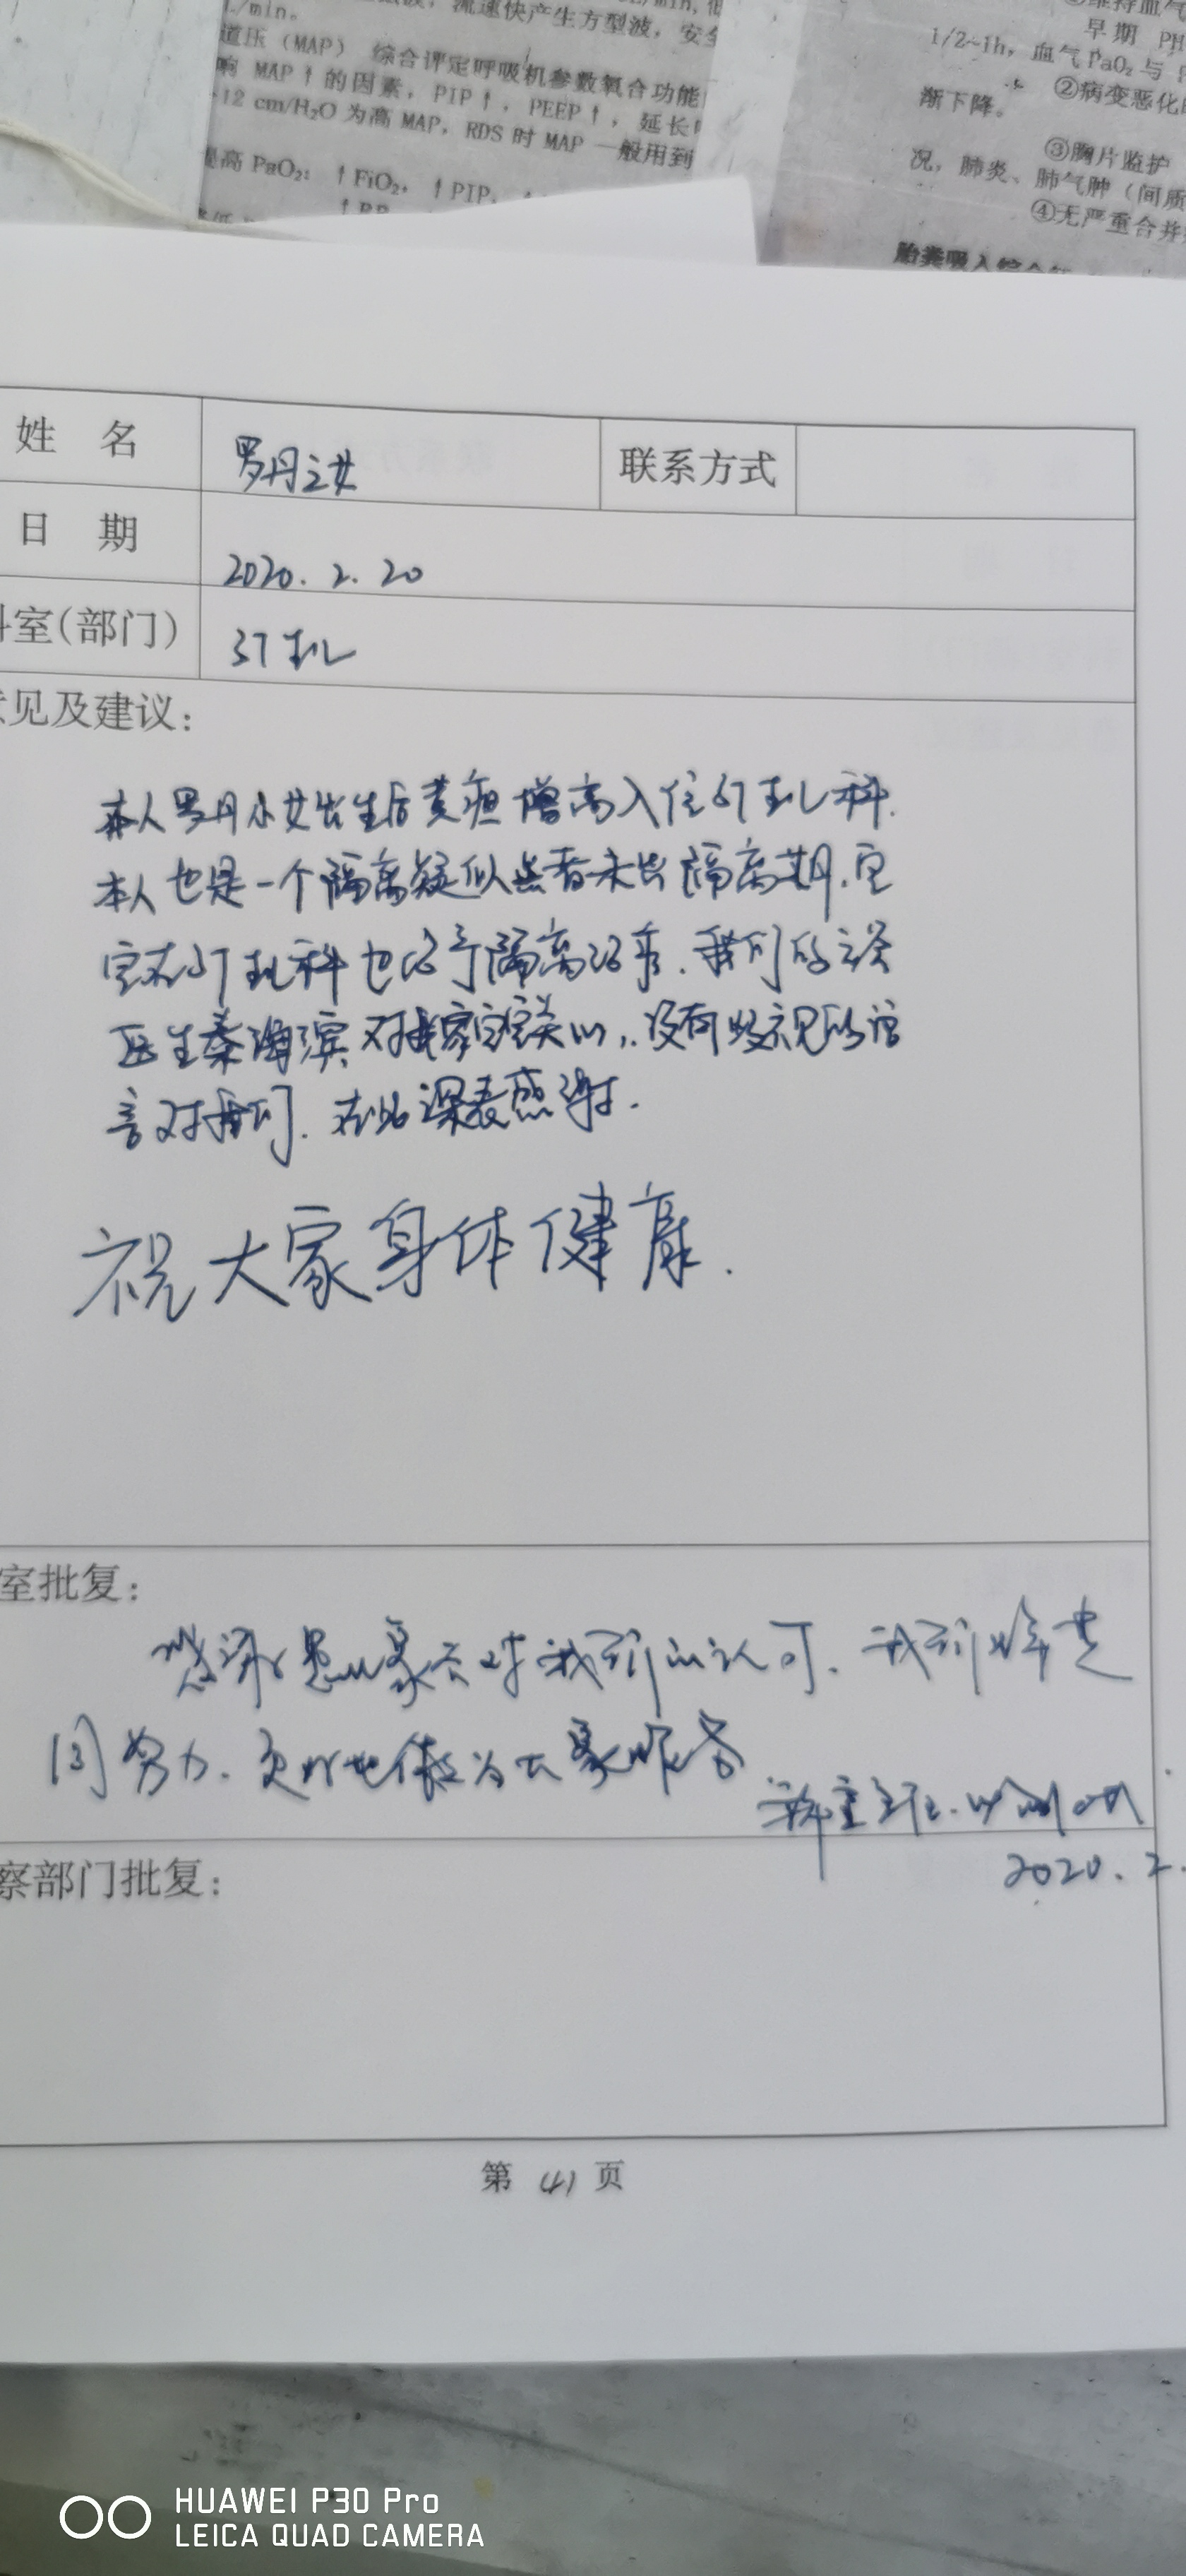 L/min。
流速快产生方型波，安全
道压（MAP） 综合评定呼吸机参数氧合功能
响 MAP↑的因素，PIP↑，PEEP↑，延长
12 cm/H₂O 为高 MAP，RDS 时 MAP 一般用到
提高 PaO₂：↑FiO₂，↑PIP，
↑RR
维持血气
早期 PH
1/2~1h，血气 PaO₂ 与
②病变恶化
渐下降。
③胸片监护
况，肺炎、肺气肿（间质
④无严重合并
胎粪吸入综合
姓 名 罗丹之女 联系方式
日 期 2020.2.20
科室(部门)
意见及建议：
本人罗丹小女出生后黄疸增高入住 科.
本人也是一个隔离疑似患者未出隔离期.宝
宝在 科也 隔离 . 我们的
医生秦海滨对我家宝宝关心,.没有
言对我们. 在此深表感谢.
祝大家身体健康.
室批复：
感谢患儿家长对我们的认可. 我们将共
同努力. 更好地做为大家服务
主任.
2020.2.
察部门批复：
第 41 页
HUAWEI P30 Pro
LEICA QUAD CAMERA